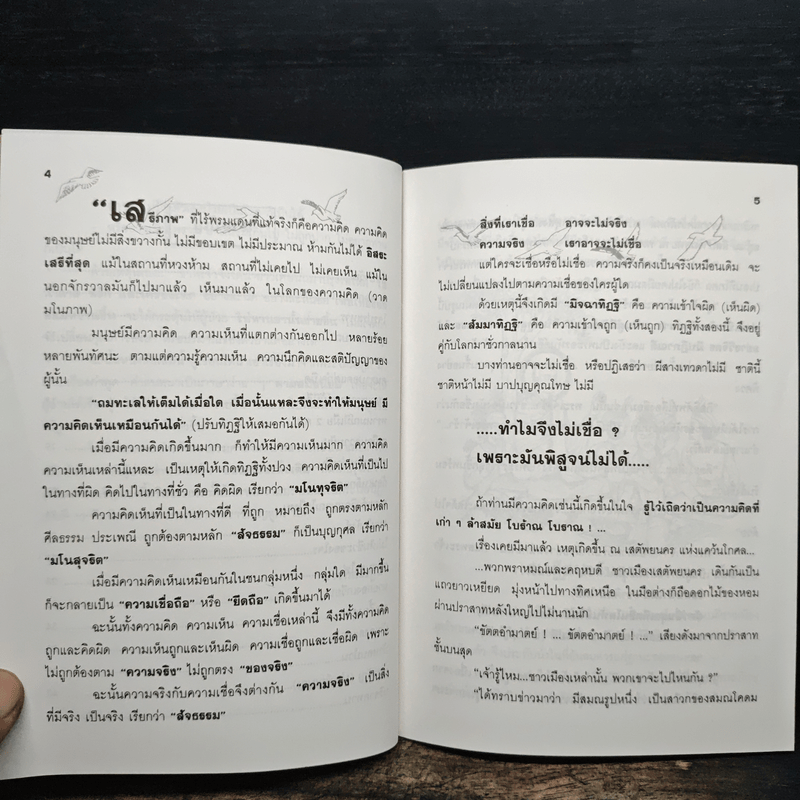 4
“เสรีภาพ” ที่ไร้พรมแดนที่แท้จริงก็คือความคิด ความคิด
ของมนุษย์ไม่มีสิ่งขวางกั้น ไม่มีขอบเขต ไม่มีประมาณ ห้ามกันไม่ได้ อิสระ
เสรีที่สุด แม้ในสถานที่หวงห้าม สถานที่ไม่เคยไป ไม่เคยเห็น แม้ใน
นอกจักรวาลมันก็ไปมาแล้ว เห็นมาแล้ว ในโลกของความคิด (วาด
มโนภาพ)
มนุษย์มีความคิด ความเห็นที่แตกต่างกันออกไป หลายร้อย
หลายพันทัศนะ ตามแต่ความรู้ความเห็น ความนึกคิดและสติปัญญาของ
ผู้นั้น
“ถมทะเลให้เต็มได้เมื่อใด เมื่อนั้นแหละจึงจะทำให้มนุษย์ มี
ความคิดเห็นเหมือนกันได้” (ปรับทิฏฐิให้เสมอกันได้)
เมื่อมีความคิดเกิดขึ้นมาก ก็ทำให้มีความเห็นมาก ความคิด
ความเห็นเหล่านี้แหละ เป็นเหตุให้เกิดทิฏฐิทั้งปวง ความคิดเห็นที่เป็นไป
ในทางที่ผิด คิดไปในทางที่ชั่ว คือ คิดผิด เรียกว่า “มโนทุจริต”
ความคิดเห็นที่เป็นในทางที่ดี ที่ถูก หมายถึง ถูกตรงตามหลัก
ศีลธรรม ประเพณี ถูกต้องตามหลัก “สัจธรรม” ก็เป็นบุญกุศล เรียกว่า
“มโนสุจริต”
เมื่อมีความคิดเห็นเหมือนกันในชนกลุ่มหนึ่ง กลุ่มใด มีมากขึ้น
ก็จะกลายเป็น “ความเชื่อถือ” หรือ “ยึดถือ” เกิดขึ้นมาได้
ฉะนั้นทั้งความคิด ความเห็น ความเชื่อเหล่านี้ จึงมีทั้งความคิด
ถูกและคิดผิด ความเห็นถูกและเห็นผิด ความเชื่อถูกและเชื่อผิด เพราะ
ไม่ถูกต้องตาม “ความจริง” ไม่ถูกตรง “ของจริง”
ฉะนั้นความจริงกับความเชื่อจึงต่างกัน “ความจริง” เป็นสิ่ง
ที่มีจริง เป็นจริง เรียกว่า “สัจธรรม”
5
สิ่งที่เราเชื่อ อาจจะไม่จริง
ความจริง เราอาจจะไม่เชื่อ
แต่ใครจะเชื่อหรือไม่เชื่อ ความจริงก็คงเป็นจริงเหมือนเดิม จะ
ไม่เปลี่ยนแปลงไปตามความเชื่อของใครผู้ใด
ด้วยเหตุนี้จึงเกิดมี “มิจฉาทิฏฐิ” คือ ความเข้าใจผิด (เห็นผิด)
และ “สัมมาทิฏฐิ” คือ ความเข้าใจถูก (เห็นถูก) ทิฏฐิทั้งสองนี้ จึงอยู่
คู่กับโลกมาชั่วกาลนาน
บางท่านอาจจะไม่เชื่อ หรือปฏิเสธว่า ผีสางเทวดาไม่มี ชาตินี้
ชาติหน้าไม่มี บาปบุญคุณโทษ ไม่มี
.....ทำไมจึงไม่เชื่อ ?
เพราะมันพิสูจน์ไม่ได้.....
ถ้าท่านมีความคิดเช่นนี้เกิดขึ้นในใจ รู้ไว้เถิดว่าเป็นความคิดที่
เก่า ๆ ล้ำสมัย โบราณ โบราณ ! ...
เรื่องเคยมีมาแล้ว เหตุเกิดขึ้น ณ เสตัพยนคร แห่งแคว้นโกศล...
...พวกพราหมณ์และคฤหบดี ชาวเมืองเสตัพยนคร เดินกันเป็น
แถวยาวเหยียด มุ่งหน้าไปทางทิศเหนือ ในมือต่างก็ถือดอกไม้ของหอม
ผ่านปราสาทหลังใหญ่ไปไม่นานนัก
“ขัตตอำมาตย์ ! ... ขัตตอำมาตย์ ! ...” เสียงดังมาจากปราสาท
ชั้นบนสุด
“เจ้ารู้ไหม...ชาวเมืองเหล่านั้น พวกเขาจะไปไหนกัน ?”
“ได้ทราบข่าวมาว่า มีสมณรูปหนึ่ง เป็นสาวกของสมณโคดม